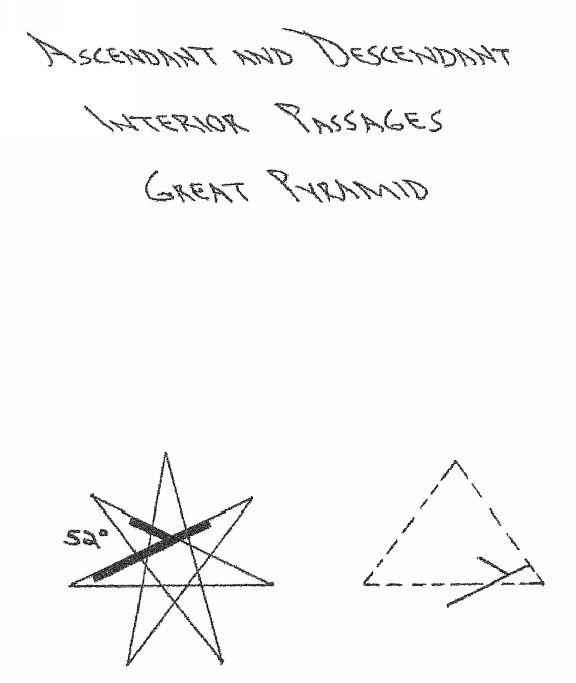 ASCENDANT AND DESCENDANT
INTERIOR PASSAGES
GREAT PYRAMID
52°